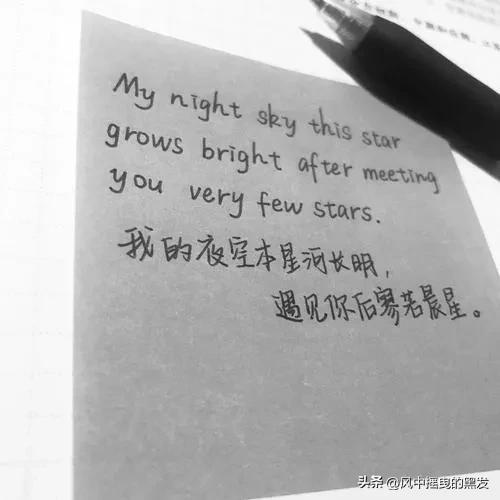 My night sky this star
grows bright after meeting
you very few stars.
我的夜空本星河长明，
遇见你后寥若晨星。
头条 @风中摇曳的黑发